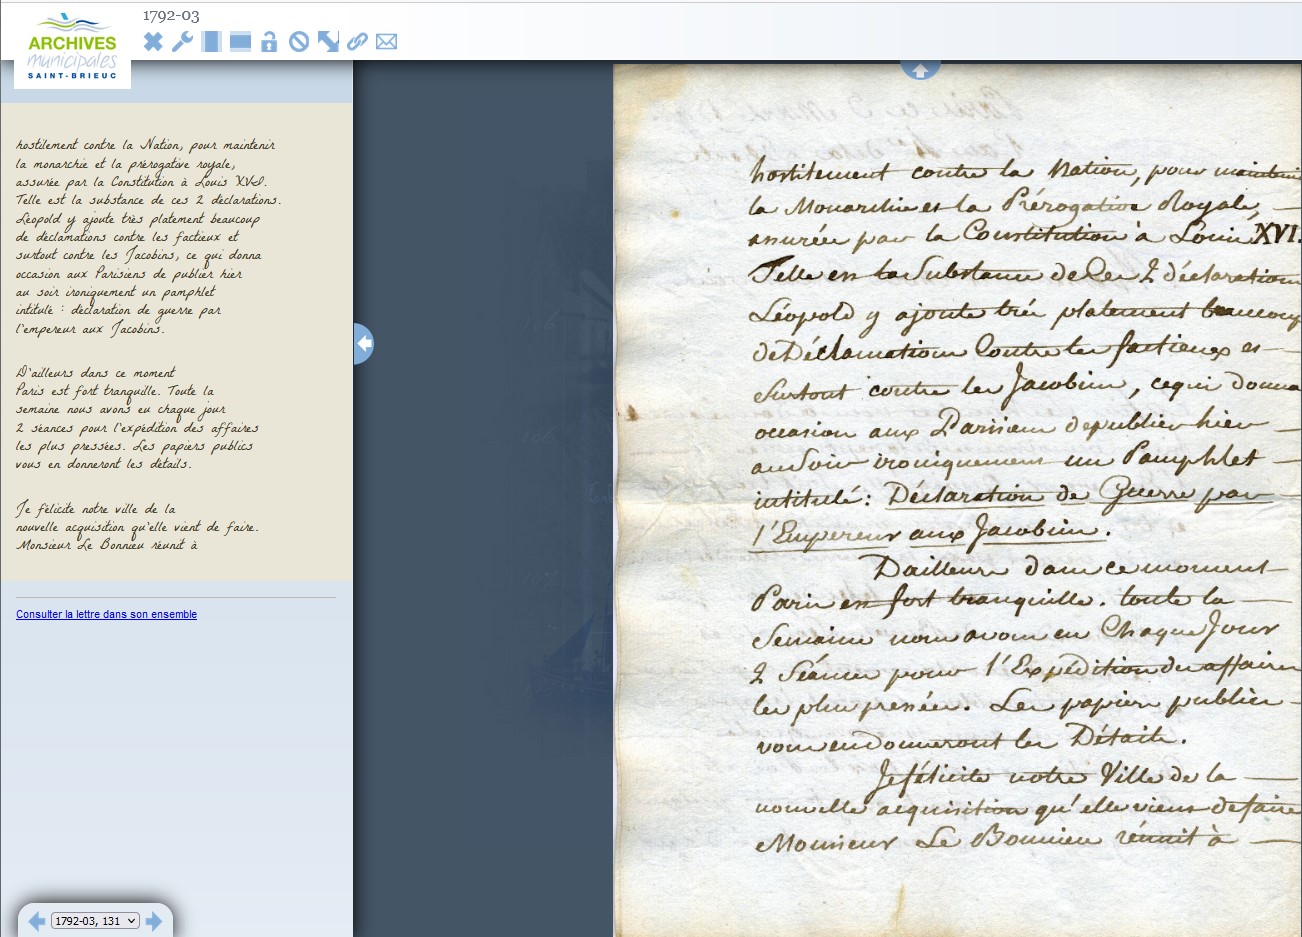 1792-03
ARCHIVES
municipales
SAINT-BRIEUC
hostilement contre la Nation, pour maintenir
la monarchie et la prérogative royale,
assurée par la Constitution à Louis XVI.
Telle est la substance de ces 2 déclarations.
Léopold y ajoute très platement beaucoup
de déclamations contre les factieux et
surtout contre les Jacobins, ce qui donna
occasion aux Parisiens de publier hier
au soir ironiquement un pamphlet
intitulé : déclaration de guerre par
l'empereur aux Jacobins.
D'ailleurs dans ce moment
Paris est fort tranquille. Toute la
semaine nous avons eu chaque jour
2 séances pour l'expédition des affaires
les plus pressées. Les papiers publics
vous en donneront les détails.
Je félicite notre ville de la
nouvelle acquisition qu'elle vient de faire.
Monsieur Le Bonnieu réunit à
Consulter la lettre dans son ensemble
1792-03, 131
hostilement contre la Nation, pour maintenir
la Monarchie et la Prérogative Royale,
assurée par la Constitution à Louis XVI.
Telle est la Substance de Ces 2 déclarations
Léopold y ajoute très platement beaucoup
de Déclamations Contre les factieux et
Surtout contre les Jacobins, ce qui donna
occasion aux Parisiens de publier hier
au Soir ironiquement un Pamphlet
intitulé : Déclaration de Guerre par
l'Empereur aux Jacobins.
Dailleurs dans ce moment
Paris est fort tranquille. toute la
Semaine nous avons eu Chaque Jour
2 Séances pour l'Expédition des affaires
les plus pressées. Les papiers publics
vous en donneront les Détails.
Je félicite notre Ville de la
nouvelle acquisition qu'elle vient de faire
Monsieur Le Bonnieu réunit à